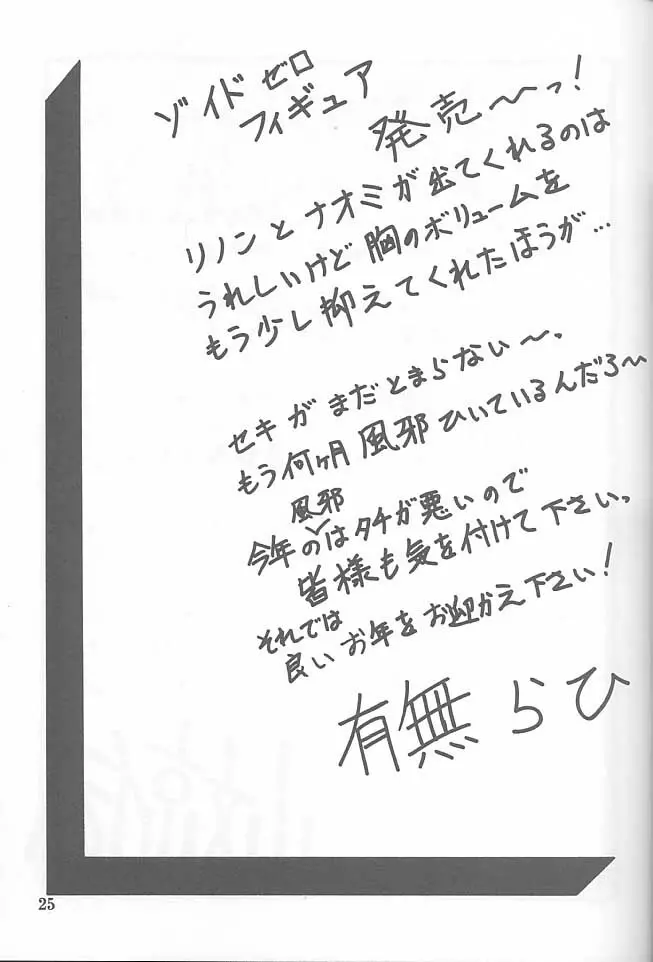 ゾイドゼロ
フィギュア
発売〜っ!
リノンとナオミが出てくれるのは
うれしいけど胸のボリュームを
もう少し抑えてくれたほうが…
セキがまだとまらない〜。
もう何ヶ月風邪ひいているんだろ〜
今年の風邪はタチが悪いので
皆様も気を付けて下さい。
それでは
良いお年をお迎かえ下さい!
有無らひ
25